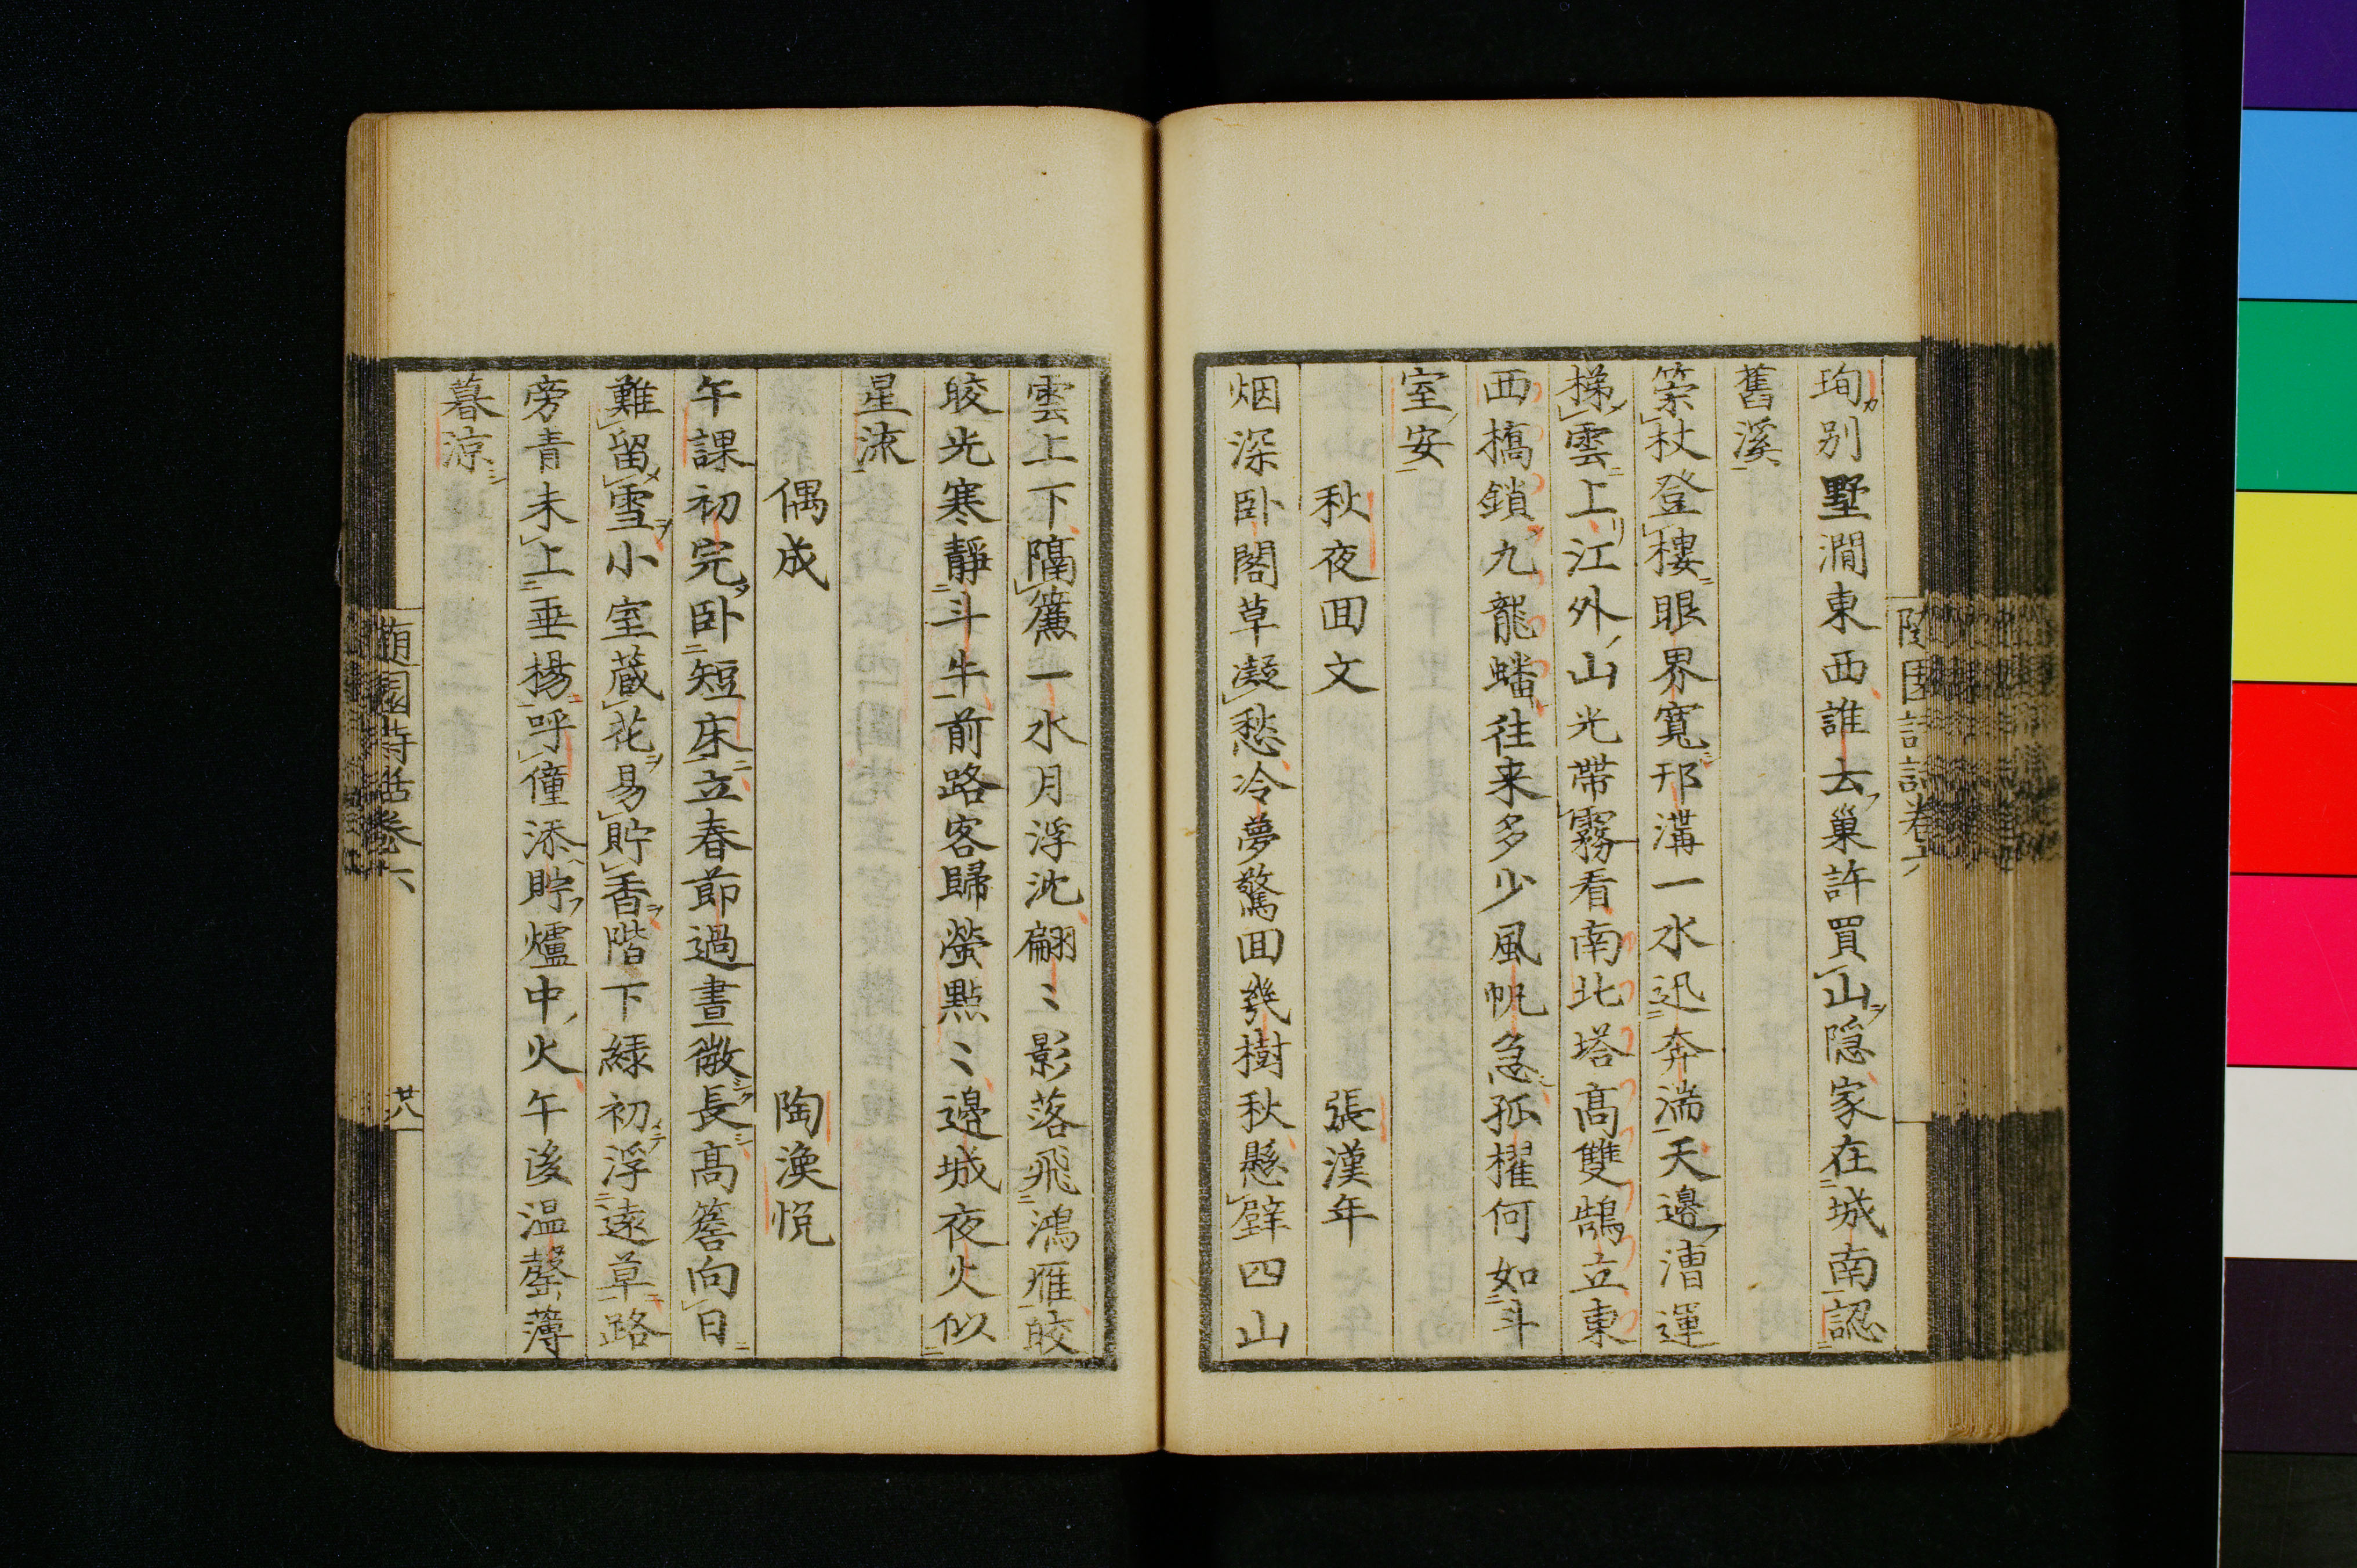 珣別墅澗東西誰去巢許買山隠家在城南認
舊溪
筞杖登樓眼界寬邗溝一水迅奔湍天邉漕運
梯雲上江外山光帶霧看南北塔髙雙鵠立東
西橋鎖九龍蟠往来多少風帆急孤櫂何如斗
室安
秋夜回文 張漢年
烟深卧閣草凝愁冷夢驚回幾樹秋懸壁四山
雲上下隔簾一水月浮沈翩〻影落飛鴻雁皎
皎光寒靜斗牛前路客歸螢點〻邉城夜火似
星流
偶成 陶渙悅
午課初完卧短床立春莭過晝微長髙簷向日
難留雪小室蔵花易貯香階下緑初浮遠草路
旁青未上垂楊呼僮添貯爐中火午後温馨薄
暮涼
随園詩話卷六
廿八